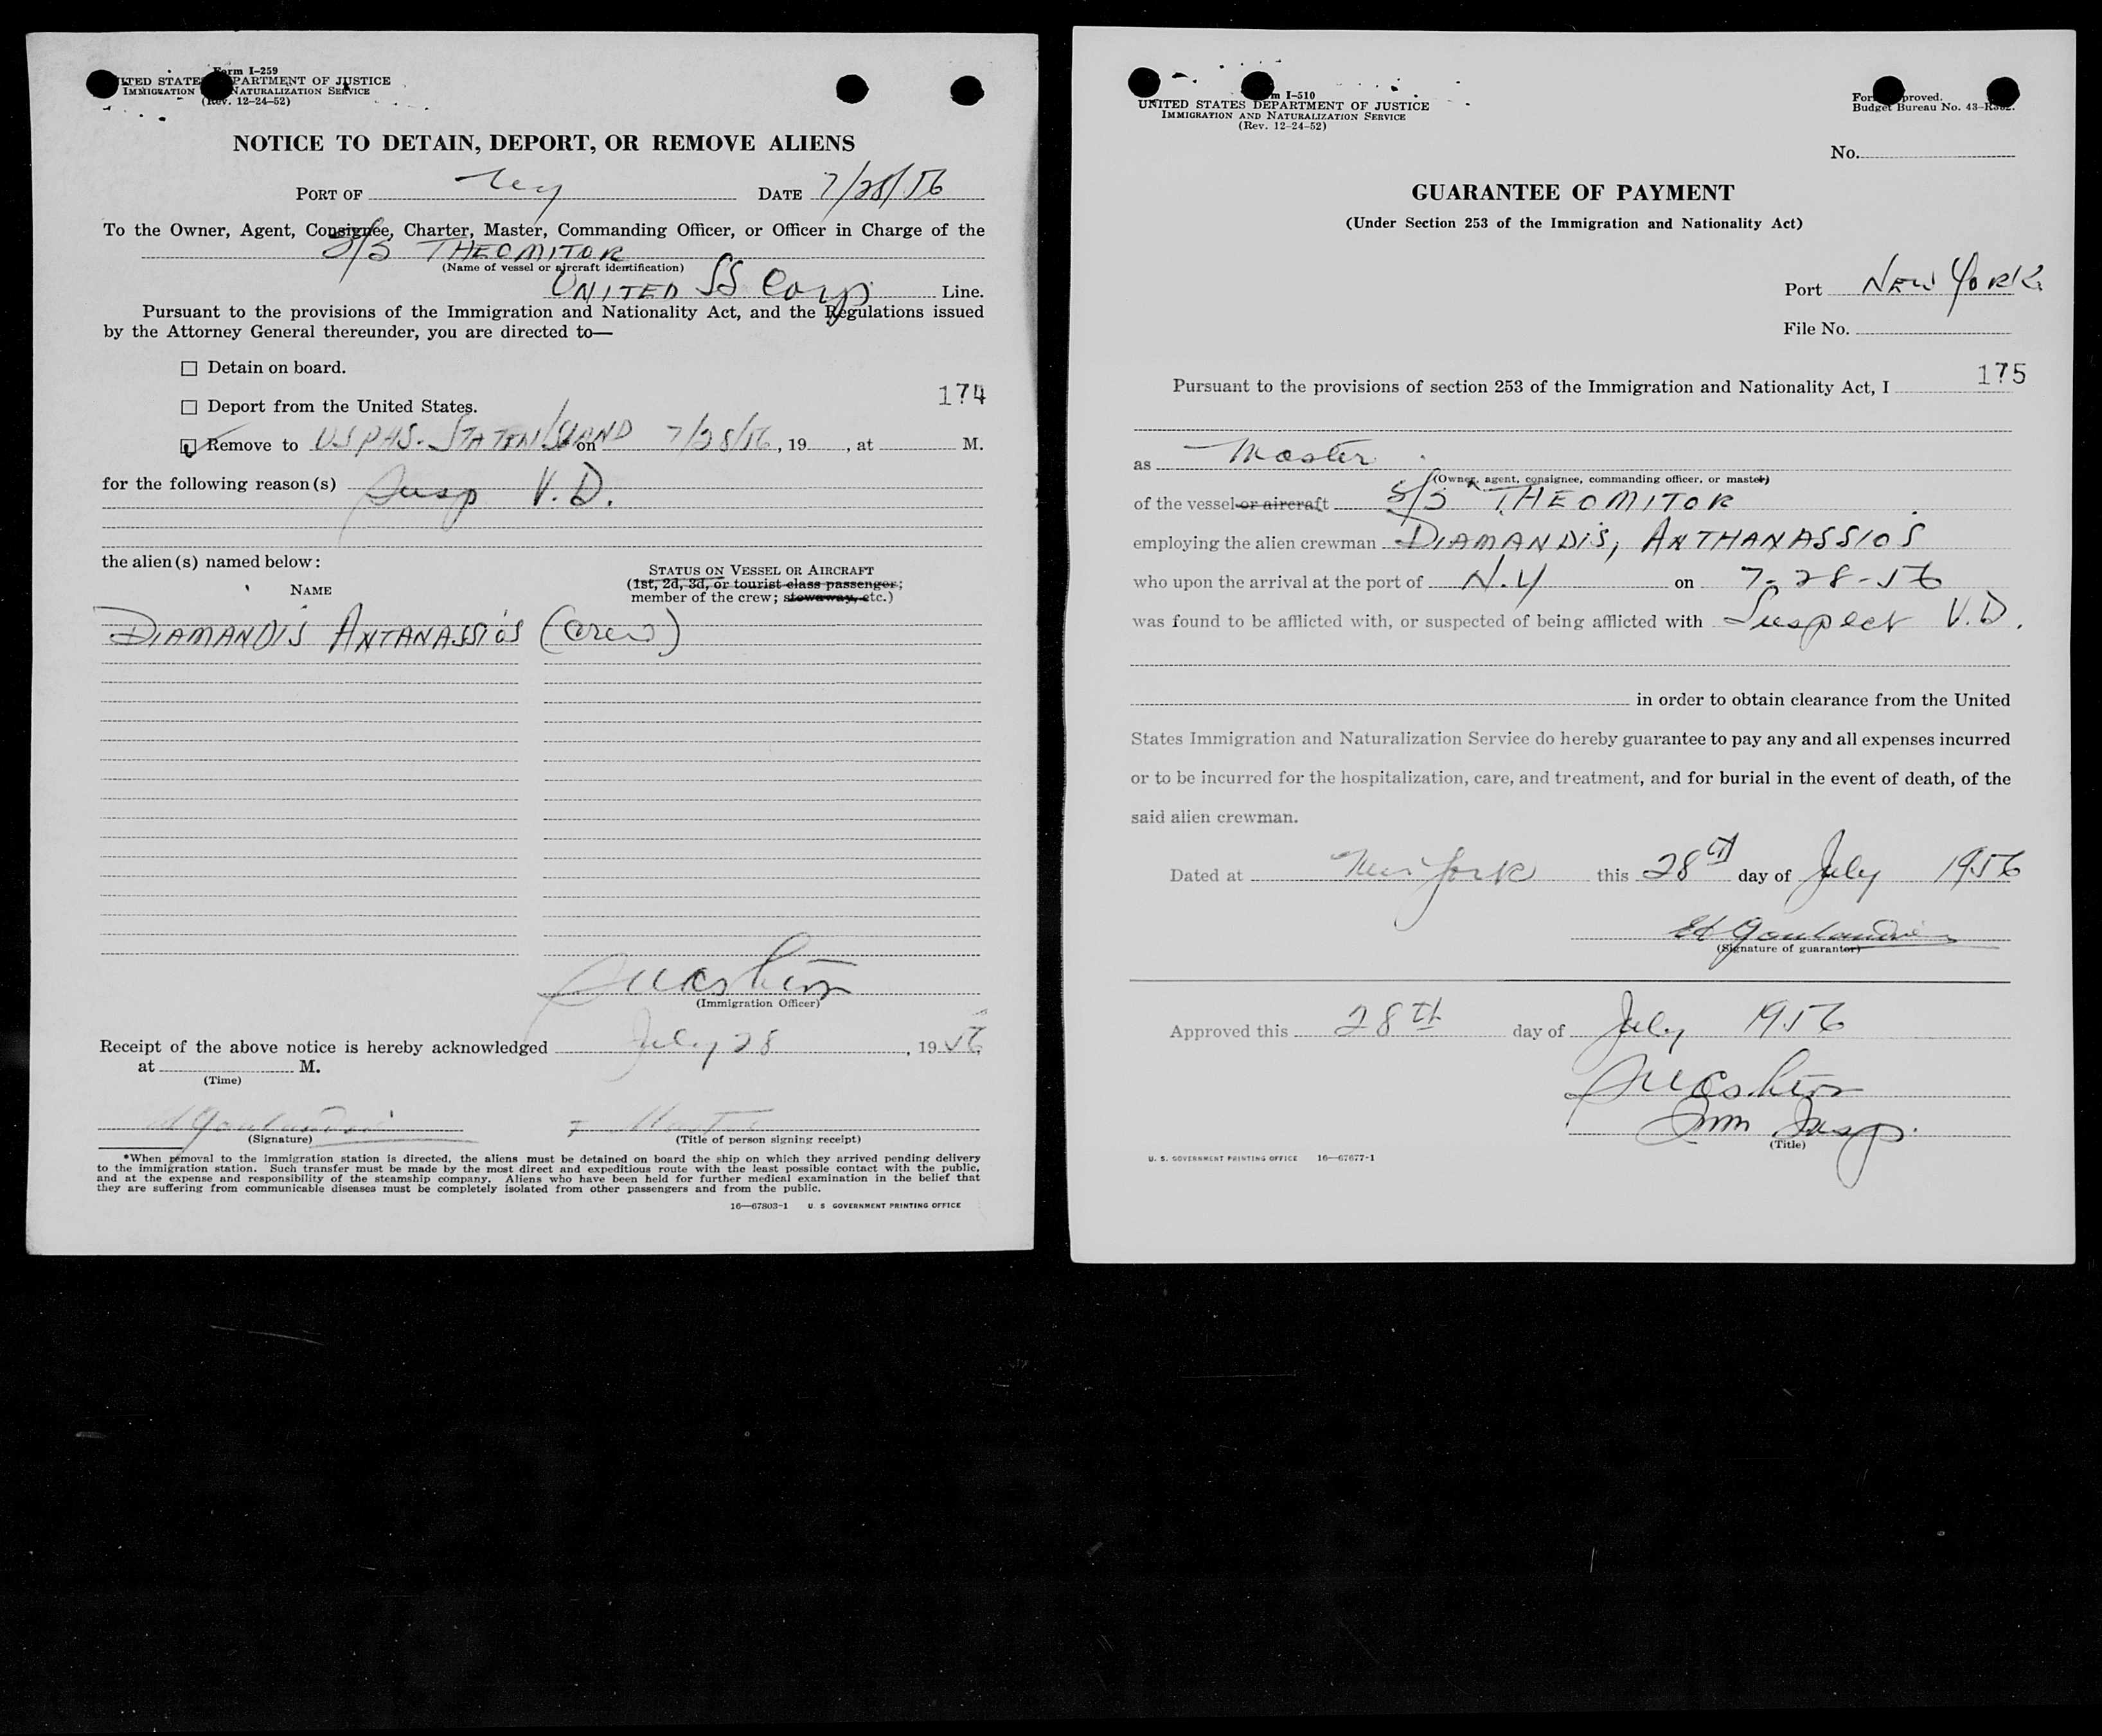 Form I-259
UNITED STATES DEPARTMENT OF JUSTICE
IMMIGRATION NATURALIZATION SERVICE
(Rev. 12-24-52)
NOTICE TO DETAIN, DEPORT, OR REMOVE ALIENS
PORT OF NY DATE 7/28/56
To the Owner, Agent, Consignee, Charter, Master, Commanding Officer, or Officer in Charge of the
S/S THEOMITOR
(Name of vessel or aircraft identification)
UNITED SS Corp Line.
Pursuant to the provisions of the Immigration and Nationality Act, and the Regulations issued
by the Attorney General thereunder, you are directed to—
☐ Detain on board.
174
☐ Deport from the United States.
Remove to USPHS. STATEN ISLAND on 7/28/56, 19 , at M.
for the following reason(s) Susp V.D.
the alien(s) named below:
NAME
STATUS ON VESSEL OR AIRCRAFT
(1st, 2d, 3d, or tourist class passenger;
member of the crew; stowaway, etc.)
DIAMANDIS ANTANASSIOS (crew)
(Immigration Officer)
Receipt of the above notice is hereby acknowledged July 28, 1956
at M.
(Time)
Master
(Signature) (Title of person signing receipt)
*When removal to the immigration station is directed, the aliens must be detained on board the ship on which they arrived pending delivery
to the immigration station. Such transfer must be made by the most direct and expeditious route with the least possible contact with the public,
and at the expense and responsibility of the steamship company. Aliens who have been held for further medical examination in the belief that
they are suffering from communicable diseases must be completely isolated from other passengers and from the public.
16—67803-1 U. S GOVERNMENT PRINTING OFFICE
Form I-510
UNITED STATES DEPARTMENT OF JUSTICE
IMMIGRATION AND NATURALIZATION SERVICE
(Rev. 12-24-52)
Form Approved.
Budget Bureau No.
No.
GUARANTEE OF PAYMENT
(Under Section 253 of the Immigration and Nationality Act)
Port NEW YORK
File No.
175
Pursuant to the provisions of section 253 of the Immigration and Nationality Act, I
as Master
(Owner, agent, consignee, commanding officer, or master)
of the vessel or aircraft S/S THEOMITOR
employing the alien crewman DIAMANDIS, ANTHANASSIOS
who upon the arrival at the port of N.Y on 7-28-56
was found to be afflicted with, or suspected of being afflicted with Suspect V.D.
in order to obtain clearance from the United
States Immigration and Naturalization Service do hereby guarantee to pay any and all expenses incurred
or to be incurred for the hospitalization, care, and treatment, and for burial in the event of death, of the
said alien crewman.
Dated at New York this 28th day of July 1956
(Signature of guarantor)
Approved this 28th day of July 1956
Imm Insp.
(Title)
U. S. GOVERNMENT PRINTING OFFICE 16—67677-1